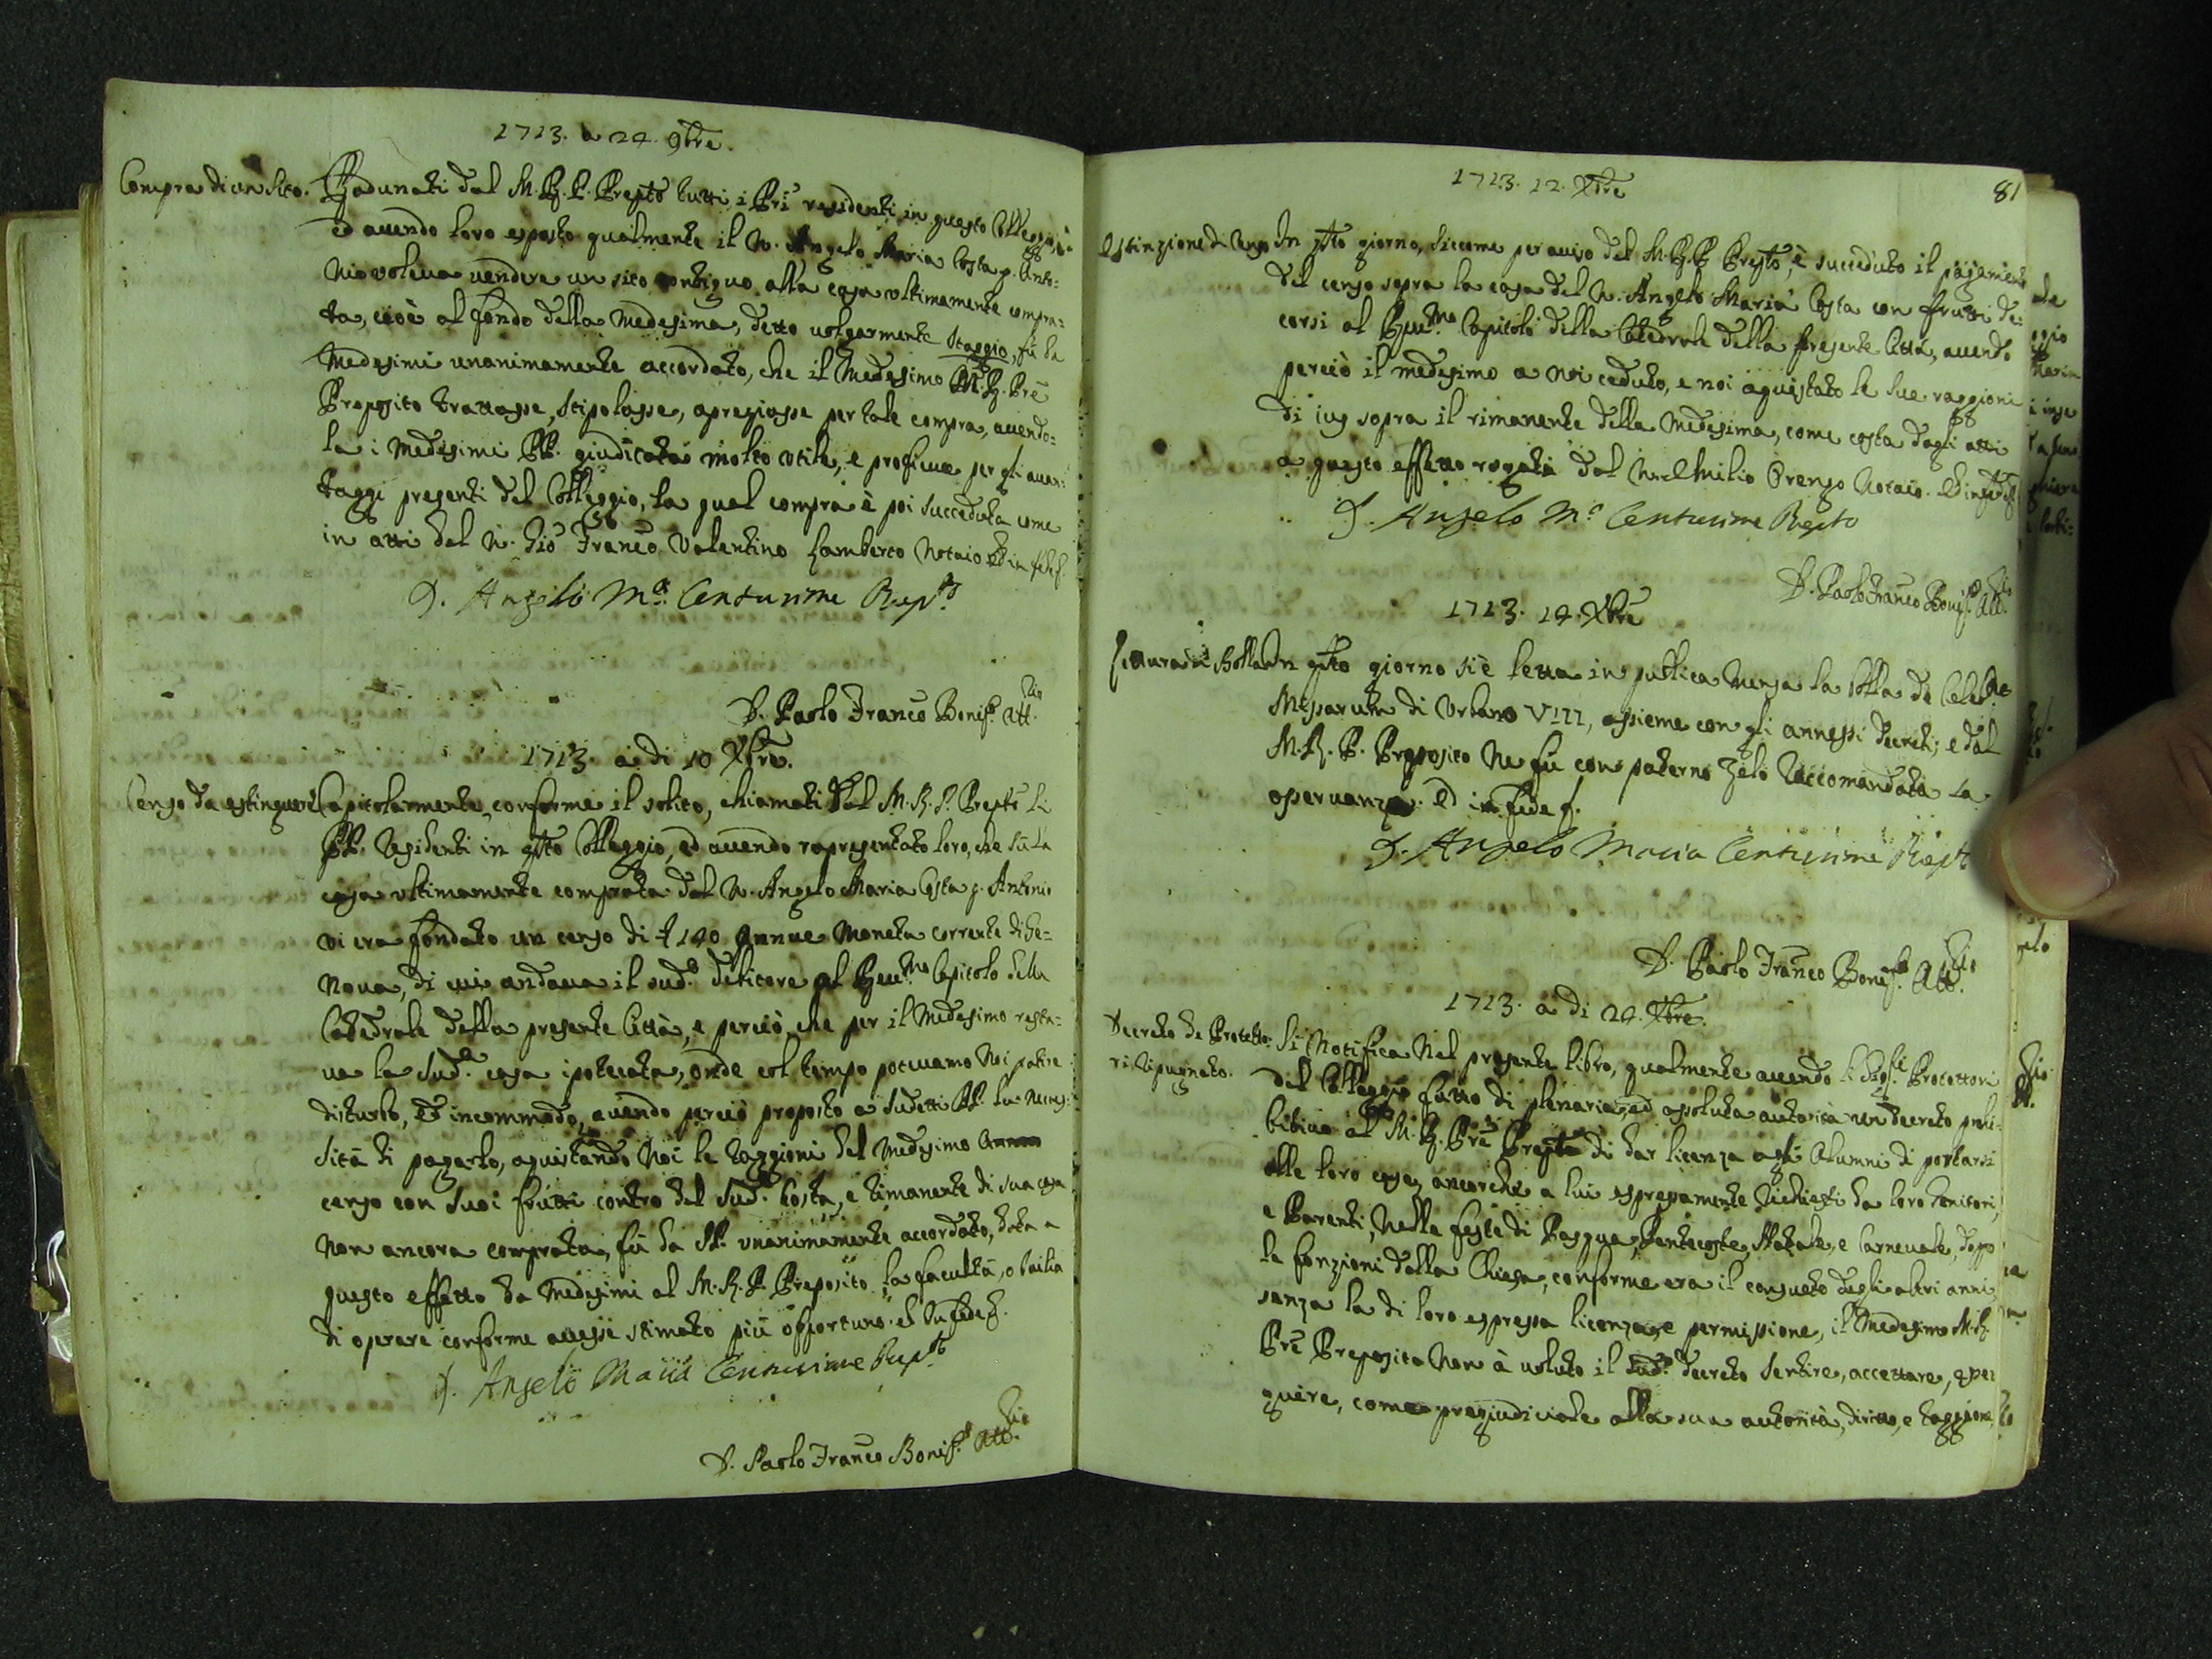 1713. a 24. 9bre.
Compra di un sito. Radunati dal M. R. P. Prepto tutti i Pri residenti in questo Colleggio
ed auendo loro esposto qualmente il N. Angelo Maria Costa q. Anto=
nio voleua uendere un sito contiguo alla casa ultimamente compra=
ta, cioè al fondo della medesima, detto uolgarmente staggio, fù da
medesimi unanimamente accordato, che il medesimo M. R. Pre
Preposito trattasse, stipolasse, apreziasse per tale compra, auendo=
la i medesimi PP. giudicata molto utile, e proficua per gli auan=
taggi presenti del Colleggio, la qual compra è poi succeduta come
in atti del N. Gio Franco Valentino Lamberto Notaio Ed in fede
D. Angelo Ma. Centurione Prepto
D. Paolo Franco Bonif. Att.rio
1713. a di 10 Xbre.
Censo da estinguere Capitolarmente, conforme il solito, chiamati dal M. R. P. Prepto li
PP. residenti in qsto Colleggio, ed auendo rapresentato loro, che sù la
casa ultimamente comprata dal N. Angelo Maria Costa q. Antonio
vi era fondato un censo di £ 140 annue moneta corrente di Ge=
noua, di cui andaua il sud.o debitore al Reu.mo Capitolo della
Catedrale della presente Città, e perciò che per il medesimo resta=
ua la sud.a casa ipotecata, onde col tempo poteuamo noi patire
disturbo, ed incommodo, auendo perciò proposto a sudetti PP. la neces=
sità di pagarlo, aquistando noi le raggioni del medesimo
censo con suoi frutti contro del sud.o Costa, e rimanente di sua casa
non ancora comprata, fù da PP. unanimamente accordato, data a
questo effetto da medesimi al M. R. P. Preposito la facultà, o bailia
di operare conforme auesse stimato più opportuno. ed in fede
D. Angelo Maria Centurione Prepto
D. Paolo Franco Bonif. Att.rio
1713. 12. Xbre
81
Estinzione di Censo In qsto giorno, siccome per auiso del M. R. P. Prepto, è succeduto il pagamento
del censo sopra la casa del N. Angelo Maria Costa con frutti de=
corsi al Reu.mo Capitolo della Catedrale della presente Città, auendo
perciò il medesimo a noi ceduto, e noi aquistato le sue raggioni
di ius sopra il rimanente della medesima, come costa dagli atti
a questo effetto rogati dal N. Emilio Prenzo Notaio. Ed in fede
D. Angelo Ma Centurione Prepto
D. Paolo Franco Bonif. Att.rio
1713. 14. Xbre
Lettura di Bolla In qsto giorno si è letta in publica mensa la bolla de Celebne
Missarum di Urbano VIII, assieme con gli annessi decreti; e dal
M. R. P. Preposito ne fù con paterno zelo raccomandata la
osseruanza. Ed in fede
D. Angelo Maria Centurione Prepto
D. Paolo Franco Bonif. Att.rio
1713. a di 24. Xbre.
Decreto de Protetto= Si notifica nel presente libro, qualmente auendo li Sig.ri Protettori
ri ripugnato. del Colleggio fatto di plenaria, ed assoluta autorità un decreto proi=
bitiuo al M. R. Pre Prepto di dar licenza agli Alumni di portarsi
alle loro case, ancorche a lui espressamente richiesti da loro Genitori,
e Parenti, nelle feste di Pasqua, Pentecoste, Natale, e Carneuale, dopo
le fonzioni della Chiesa, conforme era il consueto degli altri anni,
sanza la di loro espressa licenza, e permissione, il medesimo M. R.
Pre Preposito non à uoluto il sud.o decreto sentire, accettare,
guire, come pregiudiciale alla sua autorità, diritto, e raggione